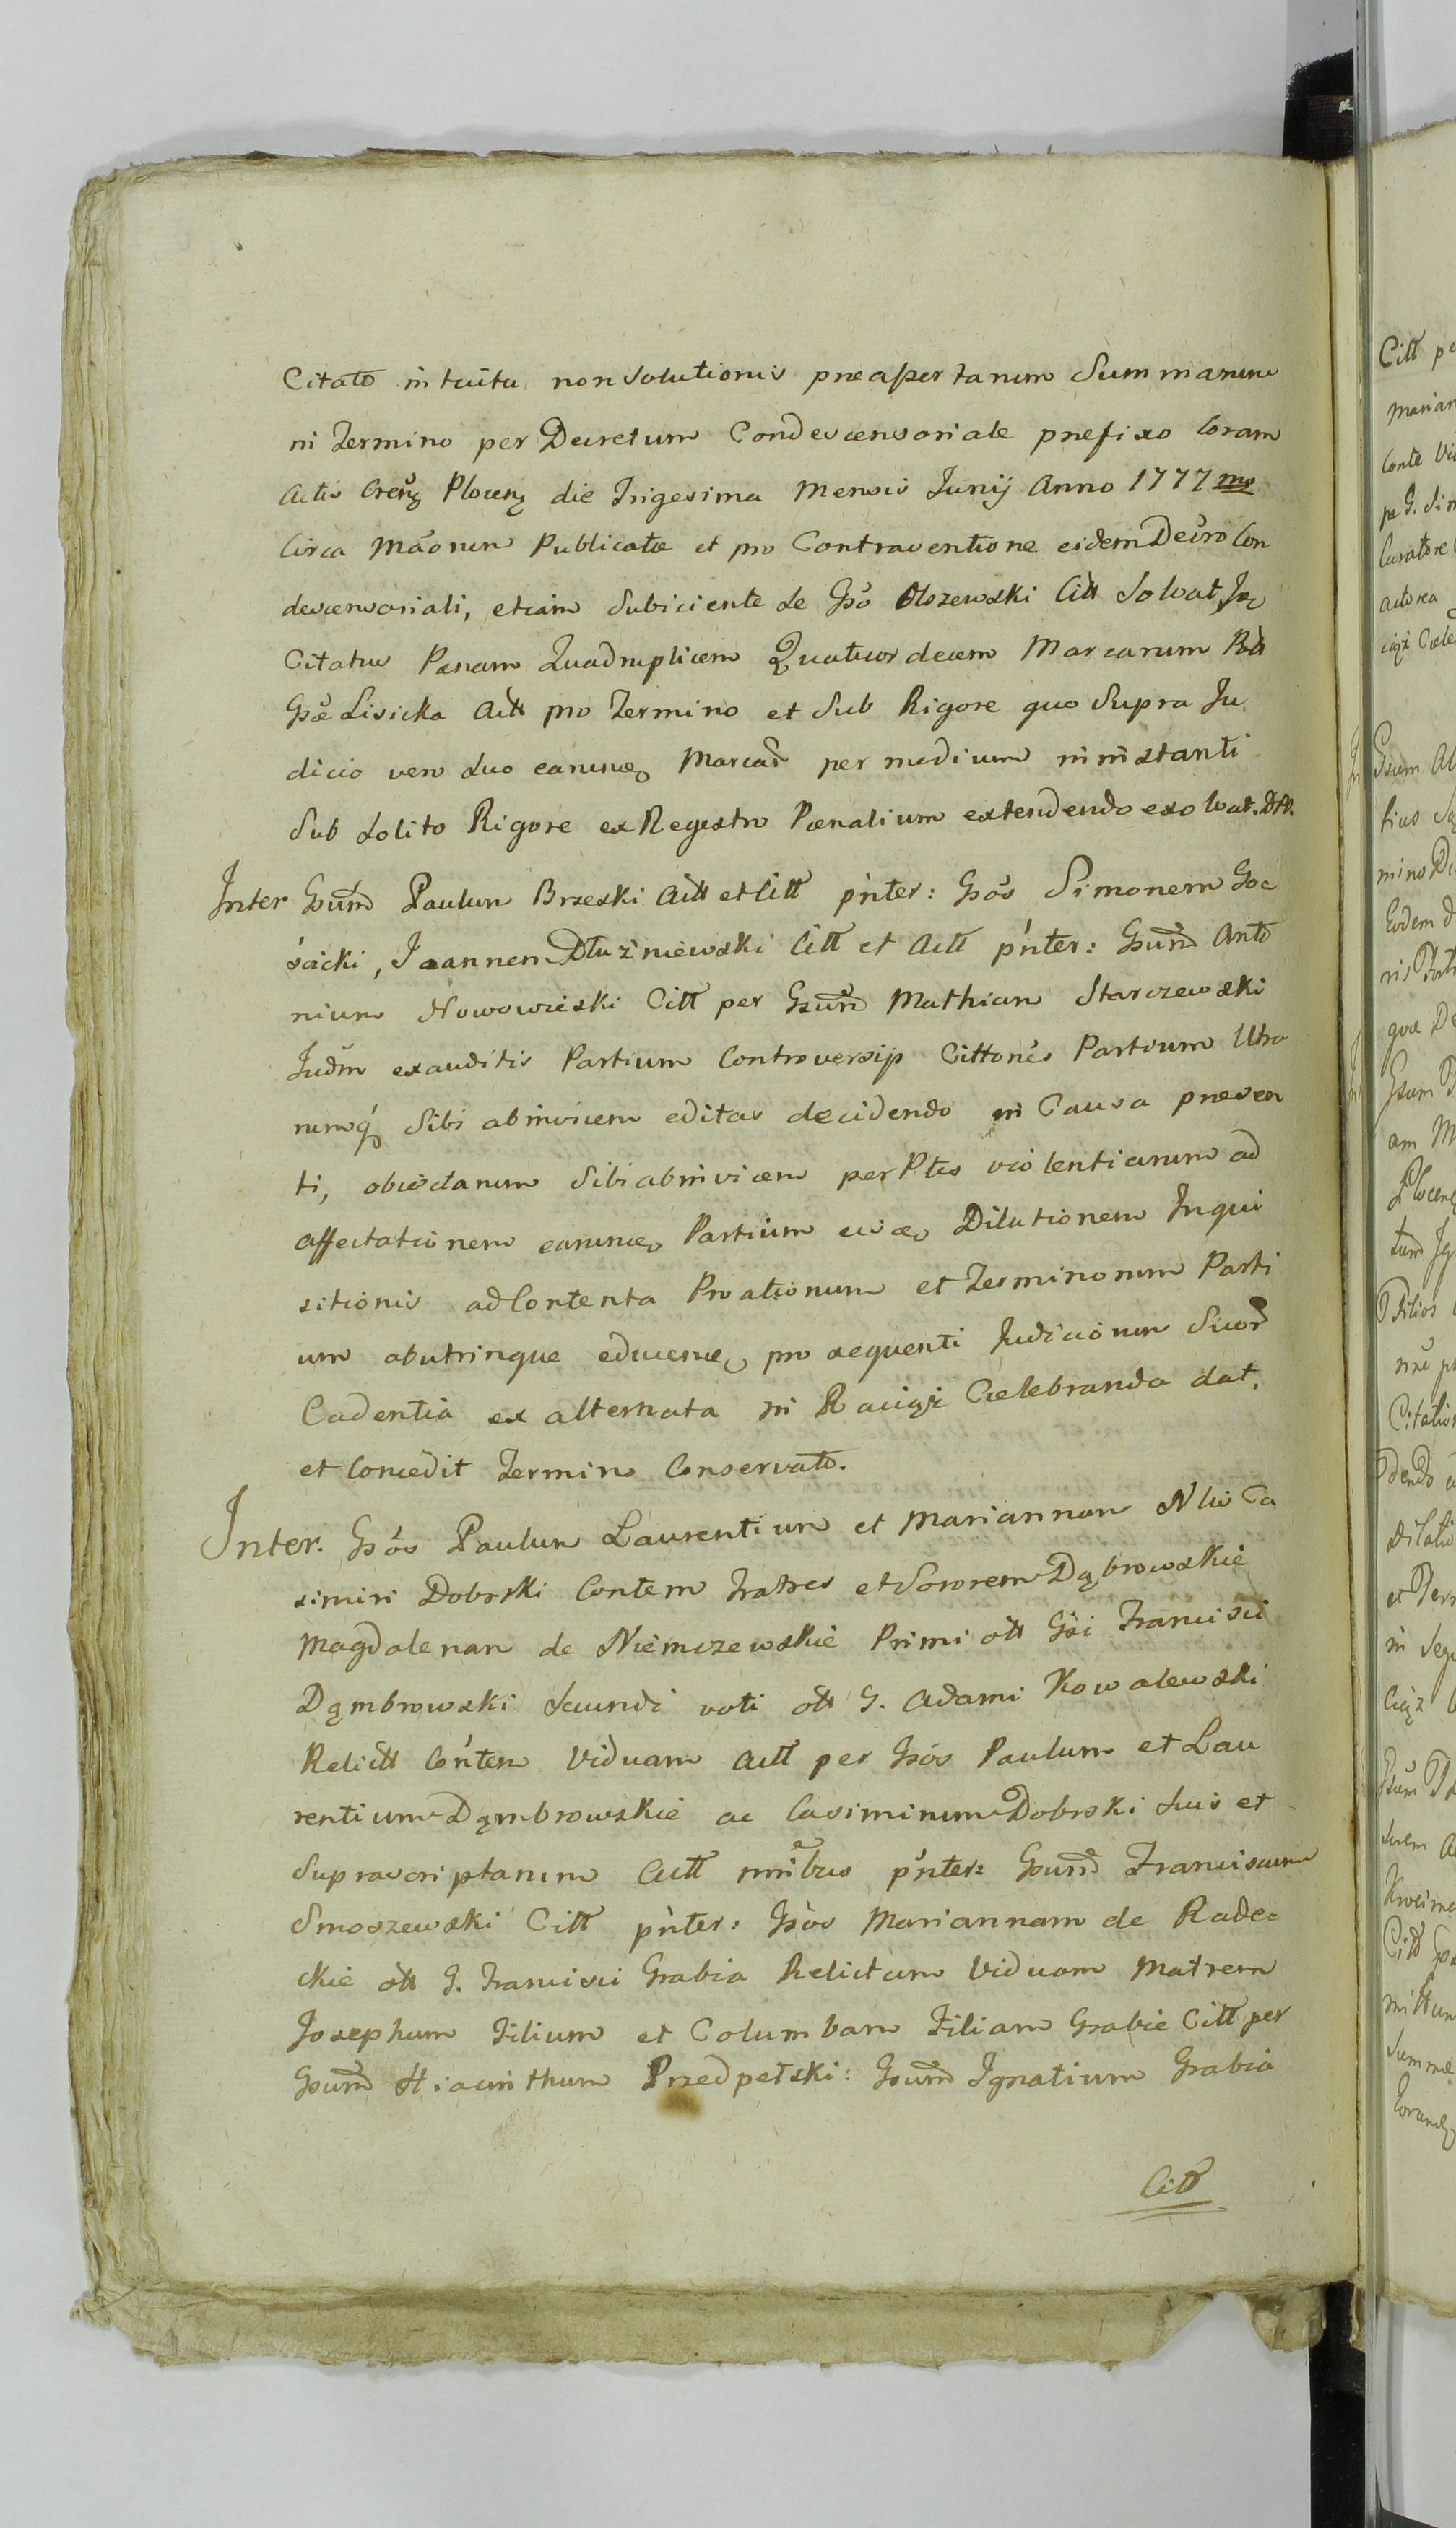 Citato intuitu non solutionis preapertarum Summarum
in Termino per Decretum Condescensoriale prefixo Coram
Actis Crenꝫ Plocenꝫ die Trigesima Mensis Junij Anno 1777 mo
Circa Mãonem Publicatæ et pro Contraventione eidem Decro Con
descensoriali, etiam Subiciente se Gso Olszewski Citt Solvat
Citatus Pænam Quadruplicem Quatuordecem Marcarum
Gsæ Lisicka Actt pro Termino et Sub Rigore quo Supra Ju
dicio vero duo earum Marcar per medium in instanti
Sub Solito Rigore ex Registro Pænalium extendendo exolvat.
Inter Gsum Paulum Brzeski Actt et Citt pnter: Gsos Simonem Goś
ścicki, Joannem Dłużniewski Citt et Actt pnter: Gsum Anto
nium Nowowieski Citt per Gsum Mathiam Starczewski
Judm exauditis Partium Controversijs Cittones Partium Utra
rumq Sibi abinvicem editas decidendo in Causa presen
ti, obiectarum Sibi abinvicem per Ptes violentiarum ad
affectationem earum Partium Dilationem Inqui
sitionis ad Contenta Proationum et Terminorum Parti
um abutrinque pro sequenti Judiciorum Suor
Cadentia ex alternata in Raciąż Cælebranda dat,
et Concedit Termino Conservato.
Inter. Gsos Paulum Laurentium et Mariannam Nlis Ca
simiri Dobrski Contem Fratres et Sororem Dąbrowskie
Magdalenam de Niemczewskie Primi ott Gsi Francisci
Dąmbrowski Secundi voti ott G. Adami Kowalewski
Relictt Contem Viduam Actt per Gsos Paulum et Lau
rentium Dąmbrowskie ac Casimirum Dobrski Suis et
Suprascriptarum Actt nnibus pnter: Gsum Franciscum
Smoszewski Citt pnter: Gsos Mariannam de Rade=
ckie ott G. Francisci Grabia Relictam Viduam Matrem
Josephum Filium et Columbam Filiam Grabie Citt per
Gsum Hiacinthum Przedpełski: Gsum Ignatium Grabia
Citt